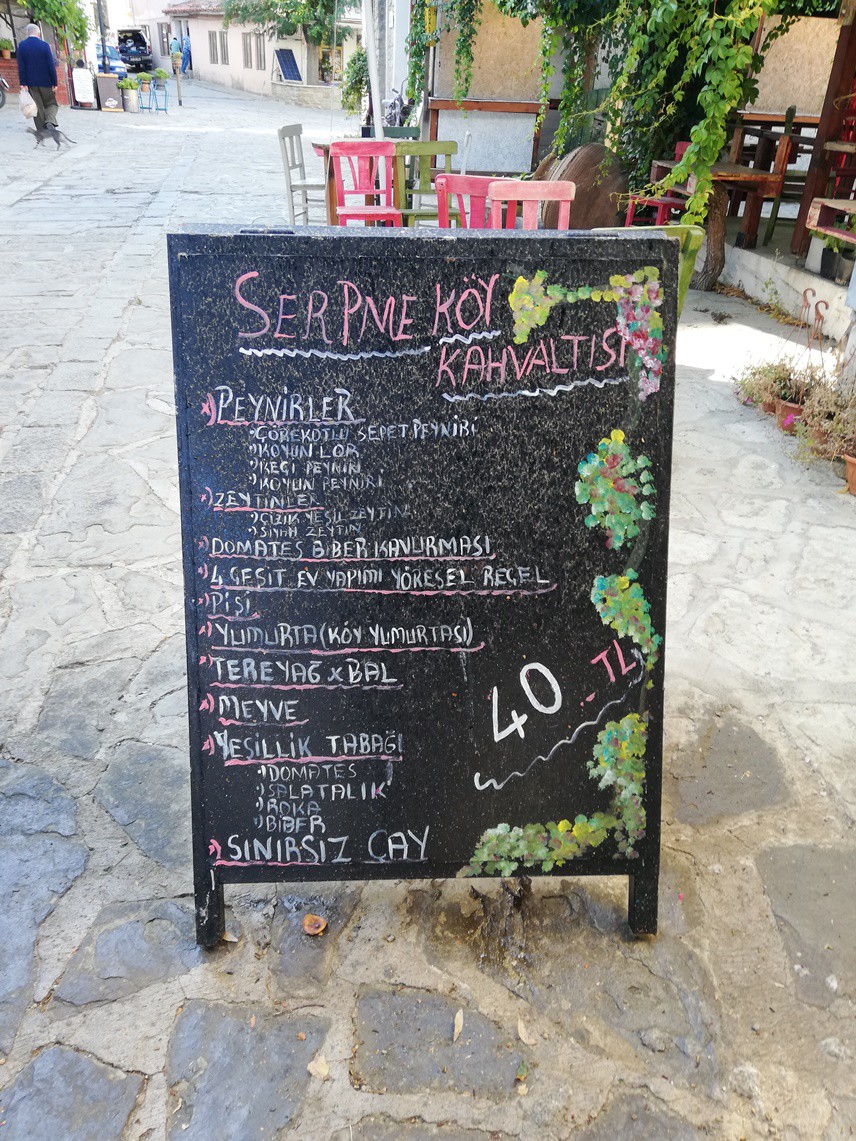 SERPME KÖY
KAHVALTISI
PEYNİRLER
ÇÖREKOTLU SEPET PEYNİRİ
KOYUN LOR
KEÇİ PEYNİRİ
KOYUN PEYNİRİ
ZEYTİNLER
ÇİZİK YEŞİL ZEYTİN
SİYAH ZEYTİN
DOMATES BİBER KAVURMASI
4 ÇEŞİT EV YAPIMI YÖRESEL REÇEL
PİŞİ
YUMURTA (KÖY YUMURTASI)
TEREYAĞ x BAL
MEYVE
40.-TL
YEŞİLLİK TABAĞI
DOMATES
SALATALIK
ROKA
BİBER
SINIRSIZ ÇAY